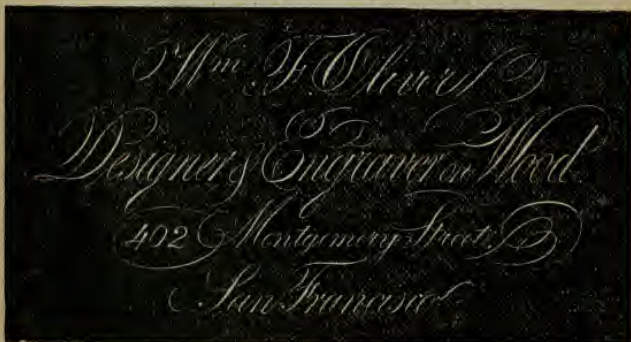 Wm. F. Oliver
Designer & Engraver on Wood
402 Montgomery Street,
San Francisco